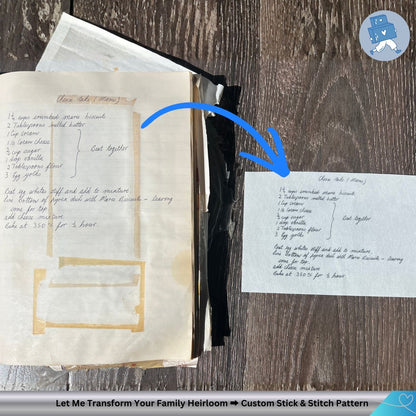 Cheese Cake (Mom)
1½ cups crumbled Marie biscuits
2 Tablespoons melted butter
1 Cup cream
1 lb Cream cheese
¾ cup sugar
1 tsp vanilla
2 Tablespoons flour
3 Egg yolks
Beat together
Beat egg whites stiff and add to mixture
Line bottom of pyrex dish with Marie Biscuits - leaving
some for top
add cheese mixture
Bake at 350° for ½ hour
Cheese Cake (Mom)
1½ cups crumbled Marie biscuits
2 Tablespoons melted butter
1 Cup cream
1 lb Cream cheese
¾ cup sugar
1 tsp vanilla
2 Tablespoons flour
3 Egg yolks
Beat together
Beat egg whites stiff and add to mixture
Line bottom of pyrex dish with Marie Biscuits - leaving
some for top
add cheese mixture
Bake at 350° for ½ hour
Let Me Transform Your Family Heirloom ➡ Custom Stick & Stitch Pattern